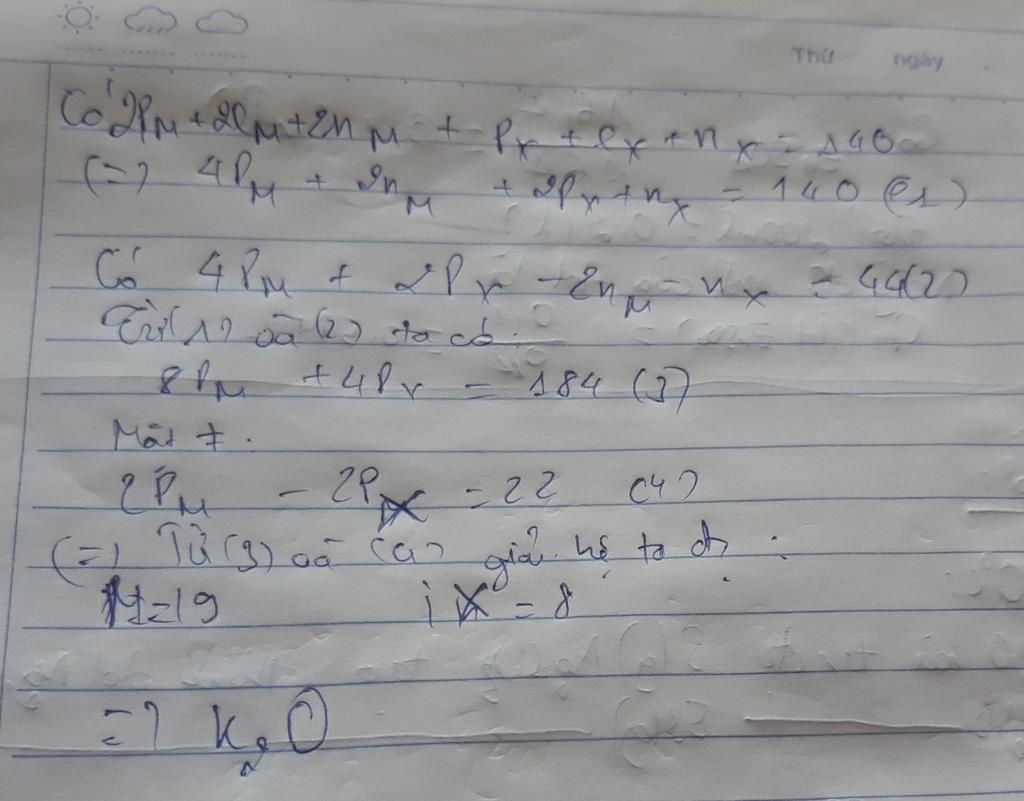 Thứ ngày
Có 2Pₘ + 2eₘ + 2nₘ + Pₓ + eₓ + nₓ = 140
(=) 4Pₘ + 2nₘ + 2Pₓ + nₓ = 140 (1)
Có 4Pₘ + 2Pₓ - 2nₘ - nₓ = 44 (2)
Từ (1) và (2) ta có:
8Pₘ + 4Pₓ = 184 (3)
Mặt ≠.
2Pₘ - 2Pₓ = 22 (4)
(=) Từ (3) và (4) giải hệ ta đc:
M = 19 ; X = 8
=) K₂O